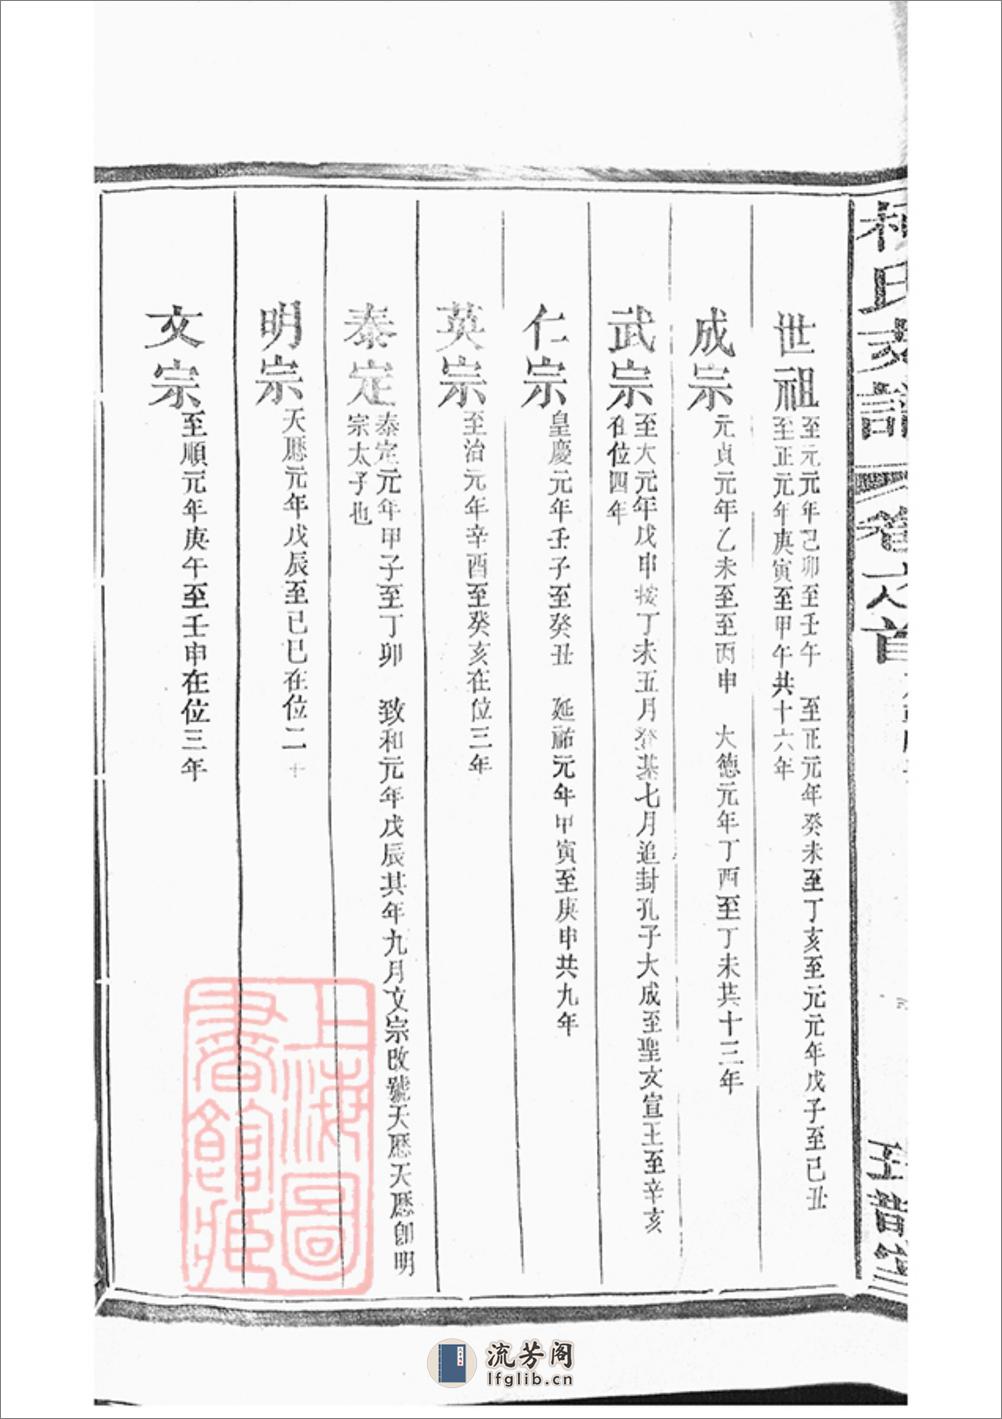 氏
譜
卷之首
世祖
至元元年己卯至壬午　至正元年癸未至丁亥至元元年戊子至己丑
至正元年庚寅至甲午共十六年
成宗
元貞元年乙未至至丙申　大德元年丁酉至丁未共十三年
武宗
至大元年戊申按丁未五月登基七月追封孔子大成至聖文宣王至辛亥
在位四年
仁宗
皇慶元年壬子至癸丑　延祐元年甲寅至庚申共九年
英宗
至治元年辛酉至癸亥在位三年
泰定
泰定元年甲子至丁卯　致和元年戊辰其年九月文宗改號天厯天厯卽明
宗太子也
明宗
天厯元年戊辰至己巳在位二
文宗
至順元年庚午至壬申在位三年
上海圖
書館藏
流芳阁
lfglib.cn